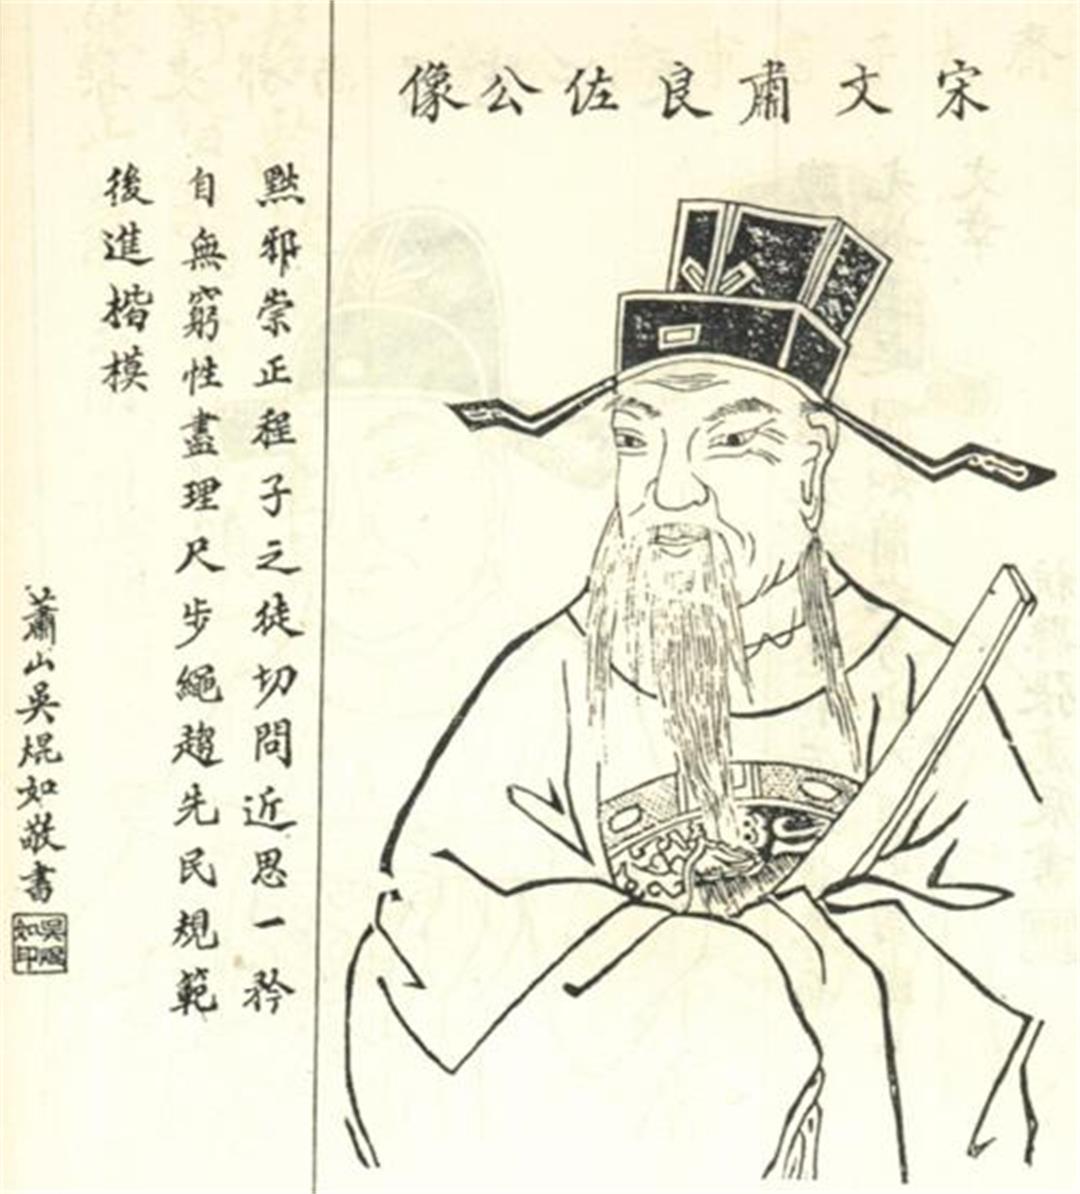 宋文肅良佐公像
黜邪崇正程子之徒切問近思一矜
自無窮性盡理尺步繩趨先民規範
後進楷模
蕭山吳焜如敬書
吳焜如印